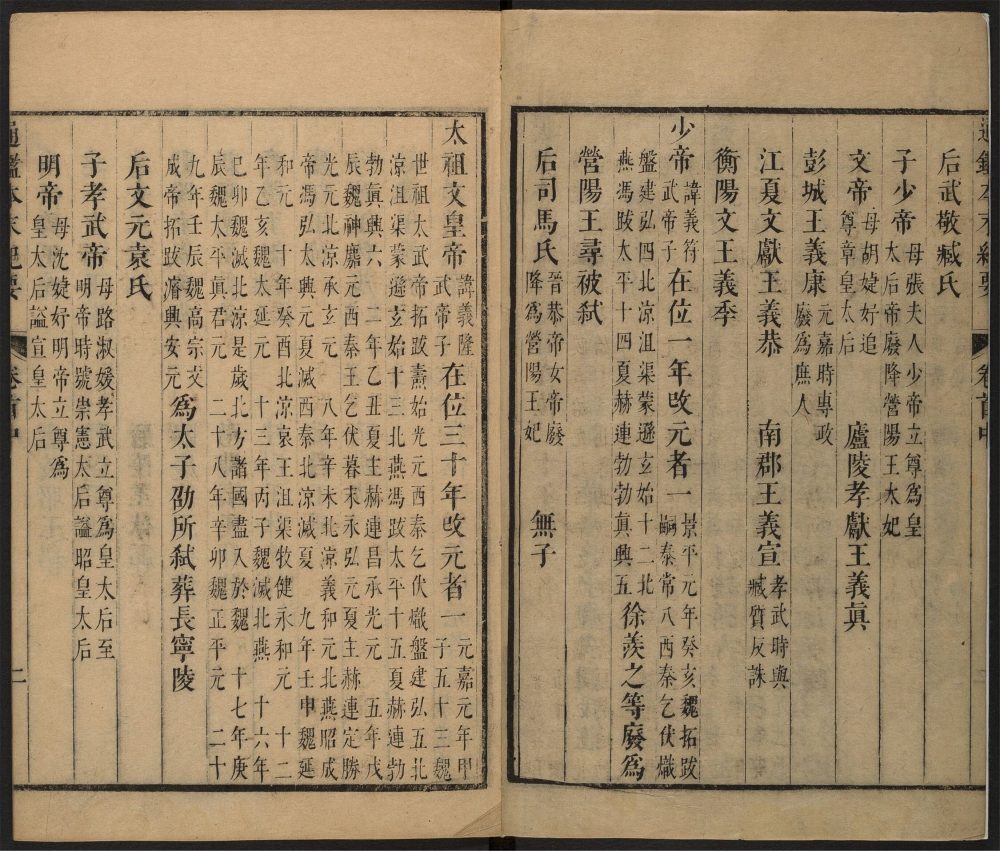 通鑑本末紀要 卷首中
后武敬臧氏
子少帝 母張夫人少帝立尊為皇太后帝廢降營陽王太妃
文帝 母胡婕妤追尊章皇太后 盧陵孝獻王義眞
彭城王義康 元嘉時專政廢為庶人
江夏文獻王義恭 南郡王義宣 孝武時與臧質反誅
衡陽文王義季
少帝 諱義符武帝子 在位一年改元者一 景平元年癸亥魏拓跋嗣泰常八西秦乞伏熾
盤建弘四北涼沮渠蒙遜玄始十二北燕馮跋太平十四夏赫連勃勃眞興五 徐羨之等廢為
營陽王尋被弑
后司馬氏 晉恭帝女帝廢降為營陽王妃 無子
太祖文皇帝 諱義隆武帝子 在位三十年改元者一 元嘉元年甲子五十三魏
世祖太武帝拓跋燾始光元西秦乞伏熾盤建弘五北
涼沮渠蒙遜玄始十三北燕馮跋太平十五夏赫連勃
勃眞興六 二年乙丑夏主赫連昌承光元 五年戊
辰魏神䴥元西秦王乞伏暮末永弘元夏主赫連定勝
光元北涼承玄元 八年辛未北涼義和元北燕昭成
帝馮弘太興元夏滅西秦北涼滅夏 九年壬申魏延
和元 十年癸酉北涼哀王沮渠牧健永和元 十二
年乙亥魏太延元 十三年丙子魏滅北燕 十六年
己卯魏滅北涼是歲北方諸國盡入於魏 十七年庚
辰魏太平眞君元 二十八年辛卯魏正平元 二十
九年壬辰魏高宗文成帝拓跋濬興安元 為太子劭所弑葬長寧陵
后文元袁氏
子孝武帝 母路淑媛孝武立尊為皇太后至明帝時號崇憲太后謚昭皇太后
明帝 母沈婕妤明帝立尊為皇太后謚宣皇太后
通鑑本末紀要 卷首中 二